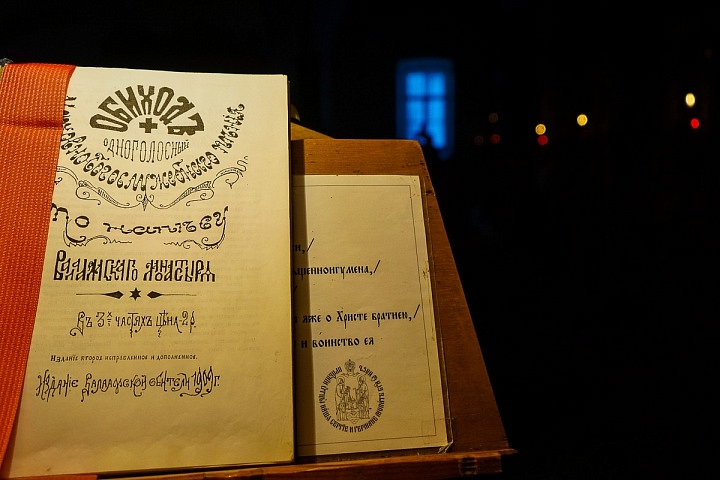 ОБИХОДЪ
ОДНОГОЛОСНЫЙ
ЦЕРКОВНО-БОГОСЛУЖЕБНАГО ПѢНІЯ
ПО НАПѢВУ
ВАЛААМСКАГО МОНАСТЫРЯ
ВЪ 3Х ЧАСТЯХЪ ЦѢНА 2 Р.
ИЗДАНІЕ ВТОРОЕ ИСПРАВЛЕННОЕ И ДОПОЛНЕННОЕ.
ИЗДАНІЕ ВАЛААМСКОЙ ОБИТЕЛИ 1909 Г.
яже о Христе братии,/
и воинство ея